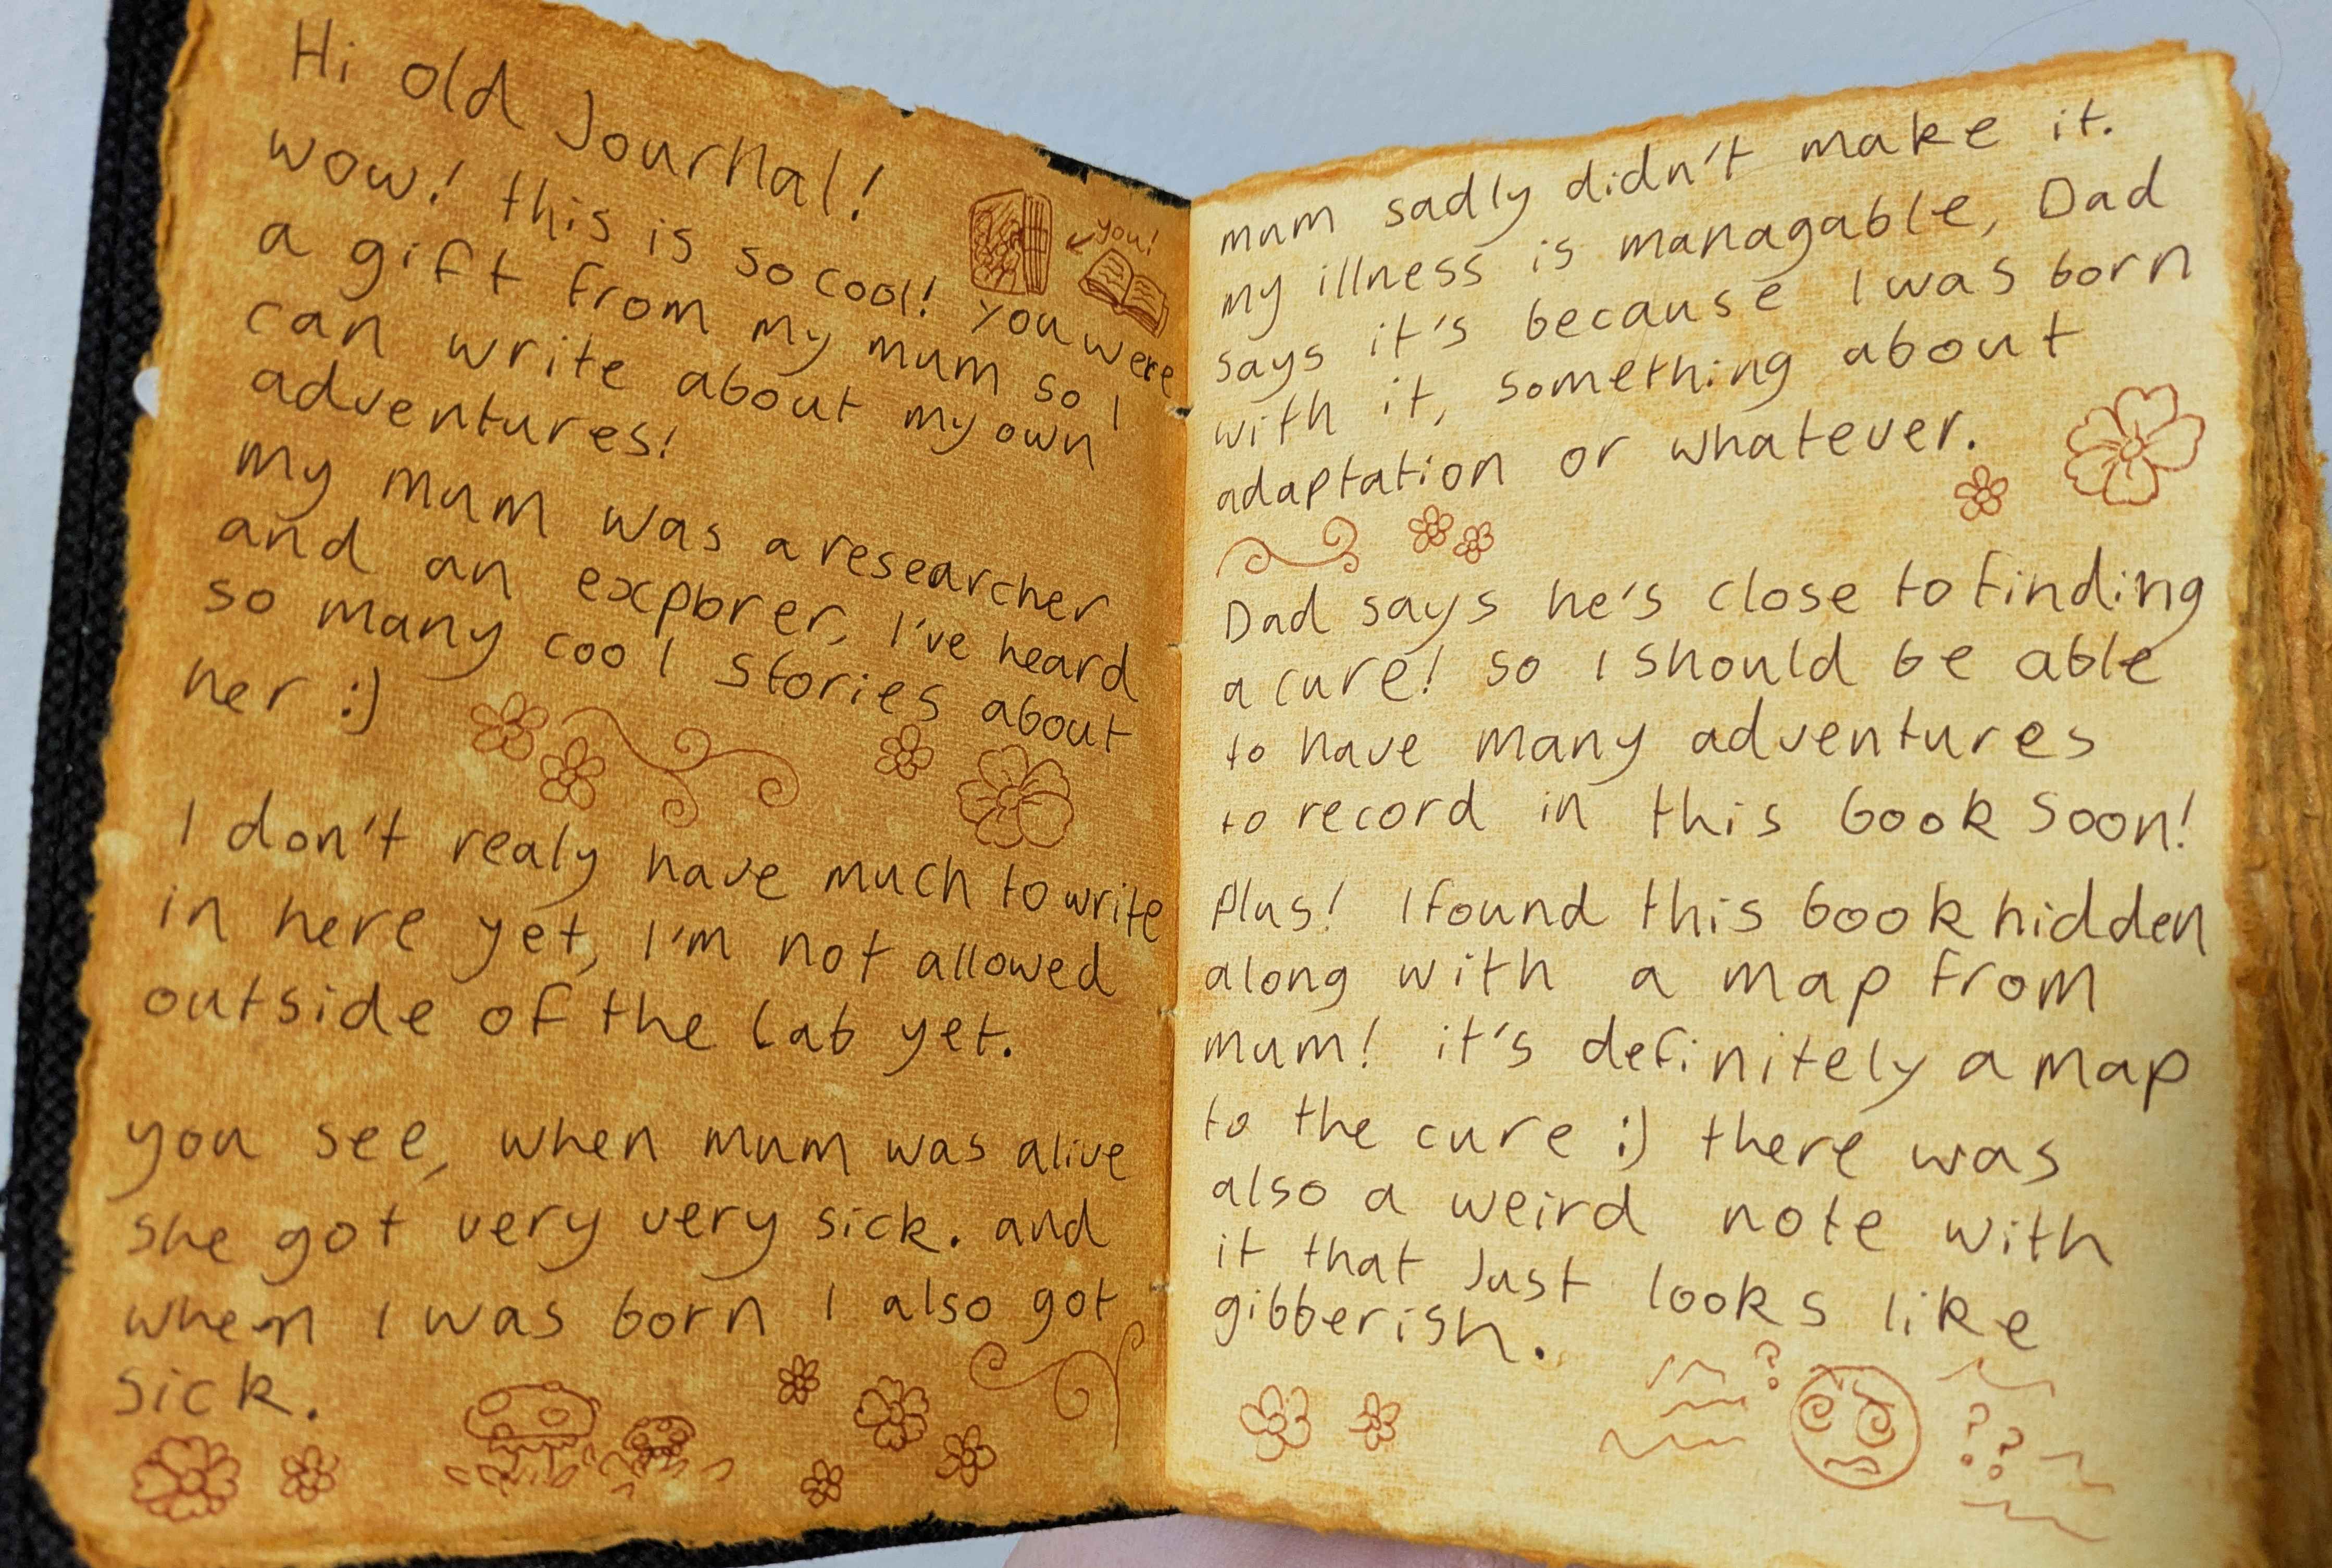 Hi old Journal!
wow! this is so cool! You were
a gift from my mum so I
can write about my own
adventures!
you!
my mum was a researcher
and an explorer, I've heard
so many cool stories about
her :)
I don't realy have much to write
in here yet, I'm not allowed
outside of the lab yet.
you see, when mum was alive
she got very very sick. and
when I was born I also got
sick.
mum sadly didn't make it.
my illness is managable, Dad
says it's because I was born
with it, something about
adaptation or whatever.
Dad says he's close to finding
a cure! so I should be able
to have many adventures
to record in this book soon!
Plus! I found this book hidden
along with a map from
mum! it's definitely a map
to the cure :) there was
also a weird note with
it that Just looks like
gibberish.
?
? ?